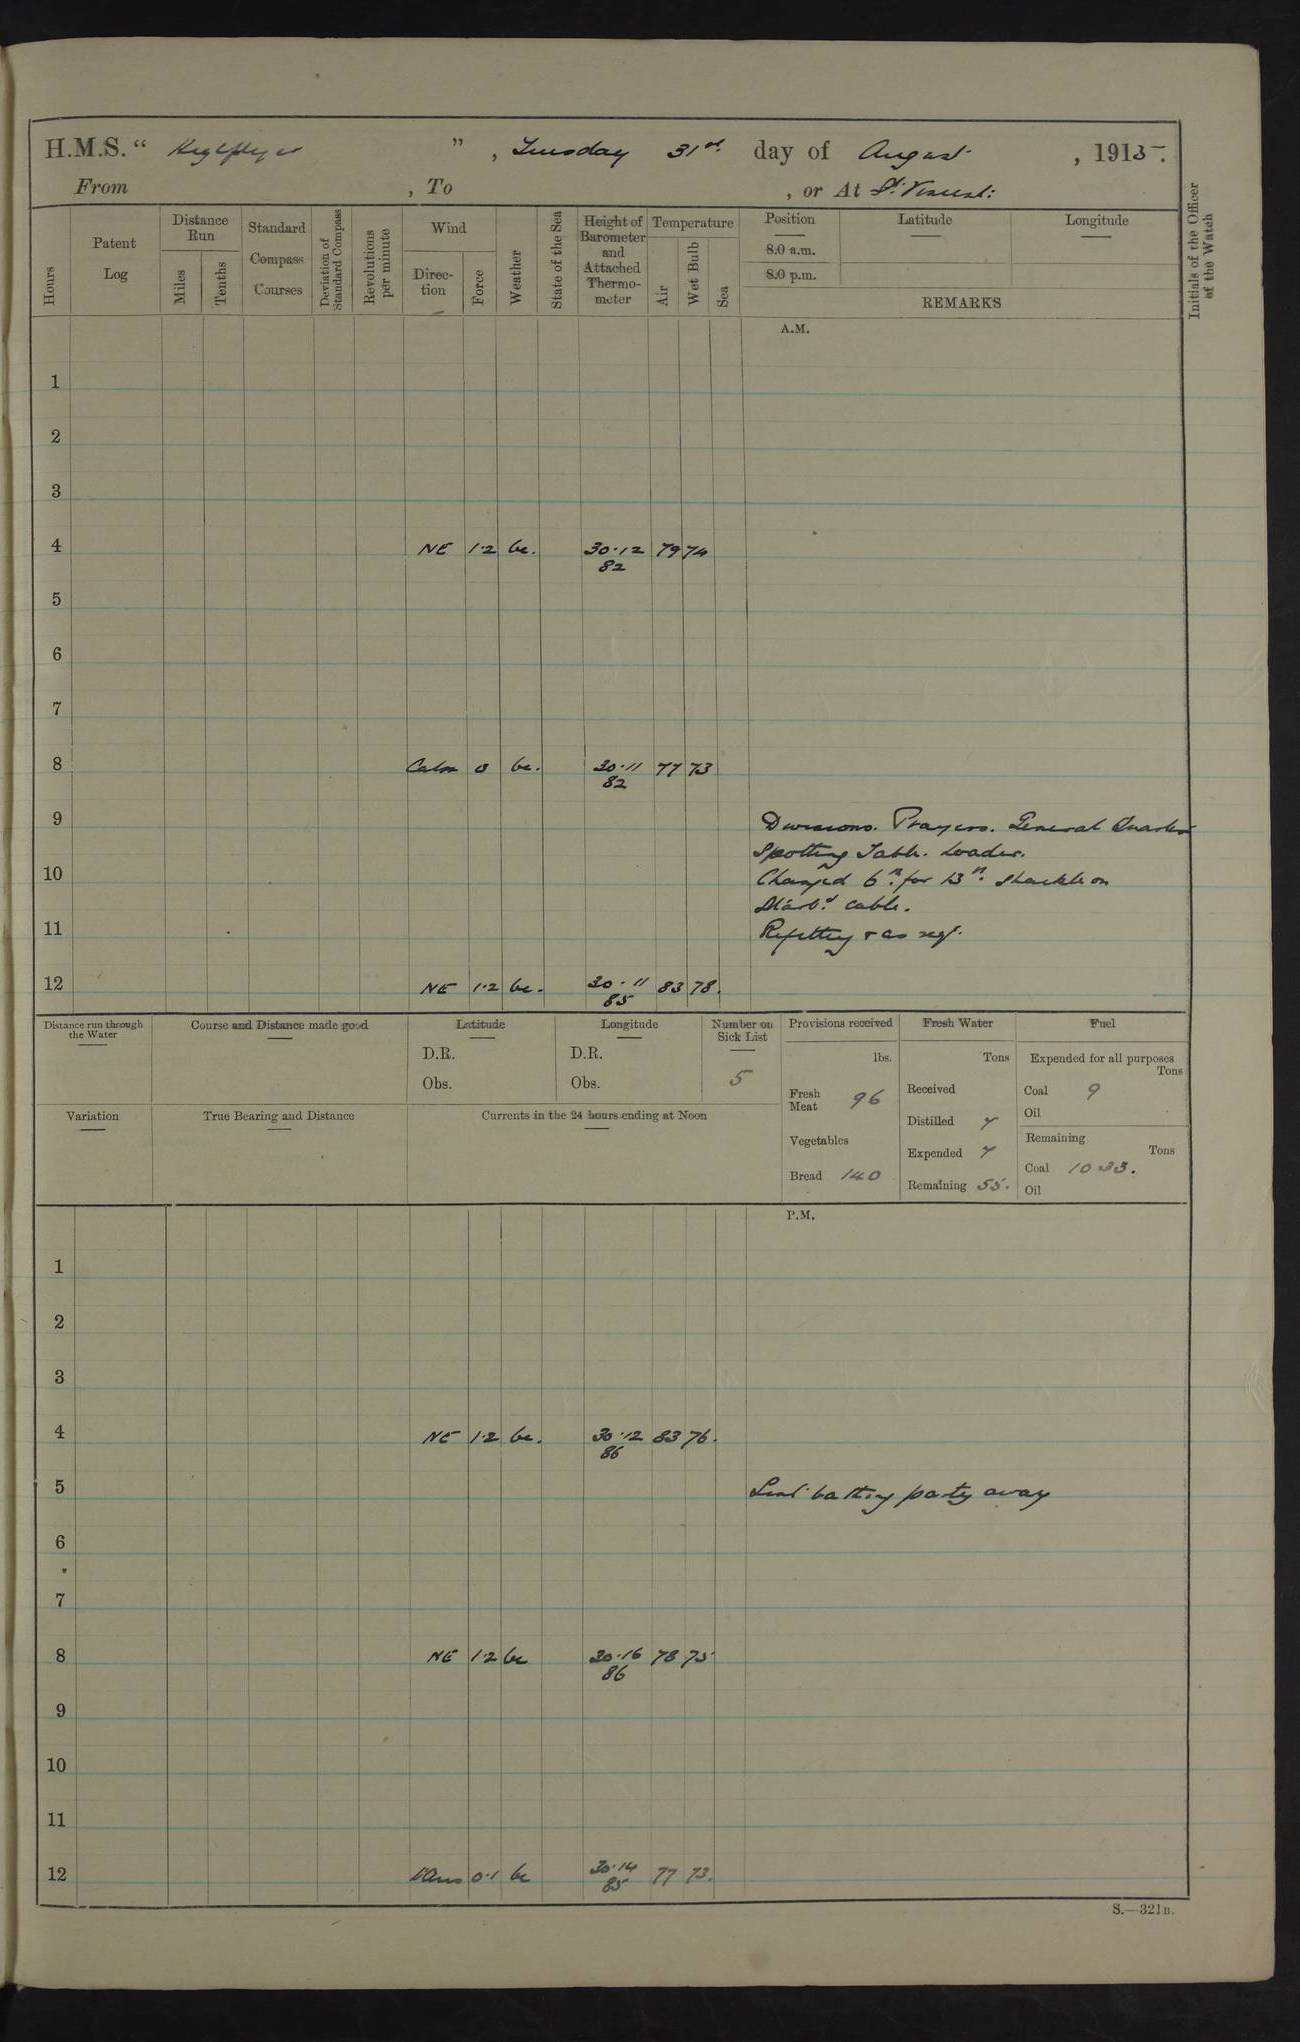 H.M.S. “ Highflyer ” , Tuesday 31st day of August , 1915.
From , To , or At St. Vincent.
Hours
Patent Log
Distance Run
Miles
Tenths
Standard Compass Courses
Deviation of Standard Compass
Revolutions per minute
Wind
Direc- tion
Force
Weather
State of the Sea
Height of Barometer and Attached Thermo- meter
Temperature
Air
Wet Bulb
Sea
Position
8.0 a.m.
8.0 p.m.
Latitude
Longitude
REMARKS
Initials of the Officer of the Watch
A.M.
1
2
3
4 NE 1·2 bc. 30·12 79 74
82
5
6
7
8 Calm 0 bc. 30·11 77 73
82
9 Divisions. Prayers. General Quarters
Spotting Table. Loader.
10 Changed 6th for 13th shackle on
Starbd cable.
11 Refitting & as reqt.
12 NE 1·2 bc. 30·11 83 78.
85
Distance run through the Water
Course and Distance made good
Latitude
D.R.
Obs.
Longitude
D.R.
Obs.
Number on Sick List
5
Provisions received
lbs.
Fresh Meat 96
Vegetables
Bread 140
Fresh Water
Tons
Received
Distilled 7
Expended 7
Remaining 55.
Fuel
Expended for all purposes
Tons
Coal 9
Oil
Remaining
Tons
Coal 1033.
Oil
Variation
True Bearing and Distance
Currents in the 24 hours ending at Noon
P.M.
1
2
3
4 NE 1·2 bc. 30·12 83 76.
86
5 Sent bathing party away
6
7
8 NE 1·2 bc 30·16 78 75
86
9
10
11
12 0·1 bc 30·14 77 73.
85
S.—321B.